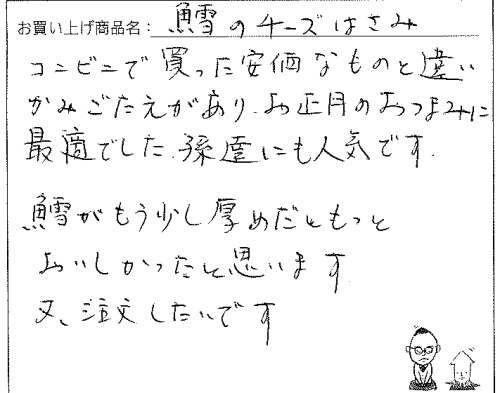 お買い上げ商品名: 鱈のチーズはさみ
コンビニで買った安価なものと違い
かみごたえがあり、お正月のおつまみに
最適でした。孫達にも人気です。
鱈がもう少し厚めだともっと
おいしかったと思います
又、注文したいです